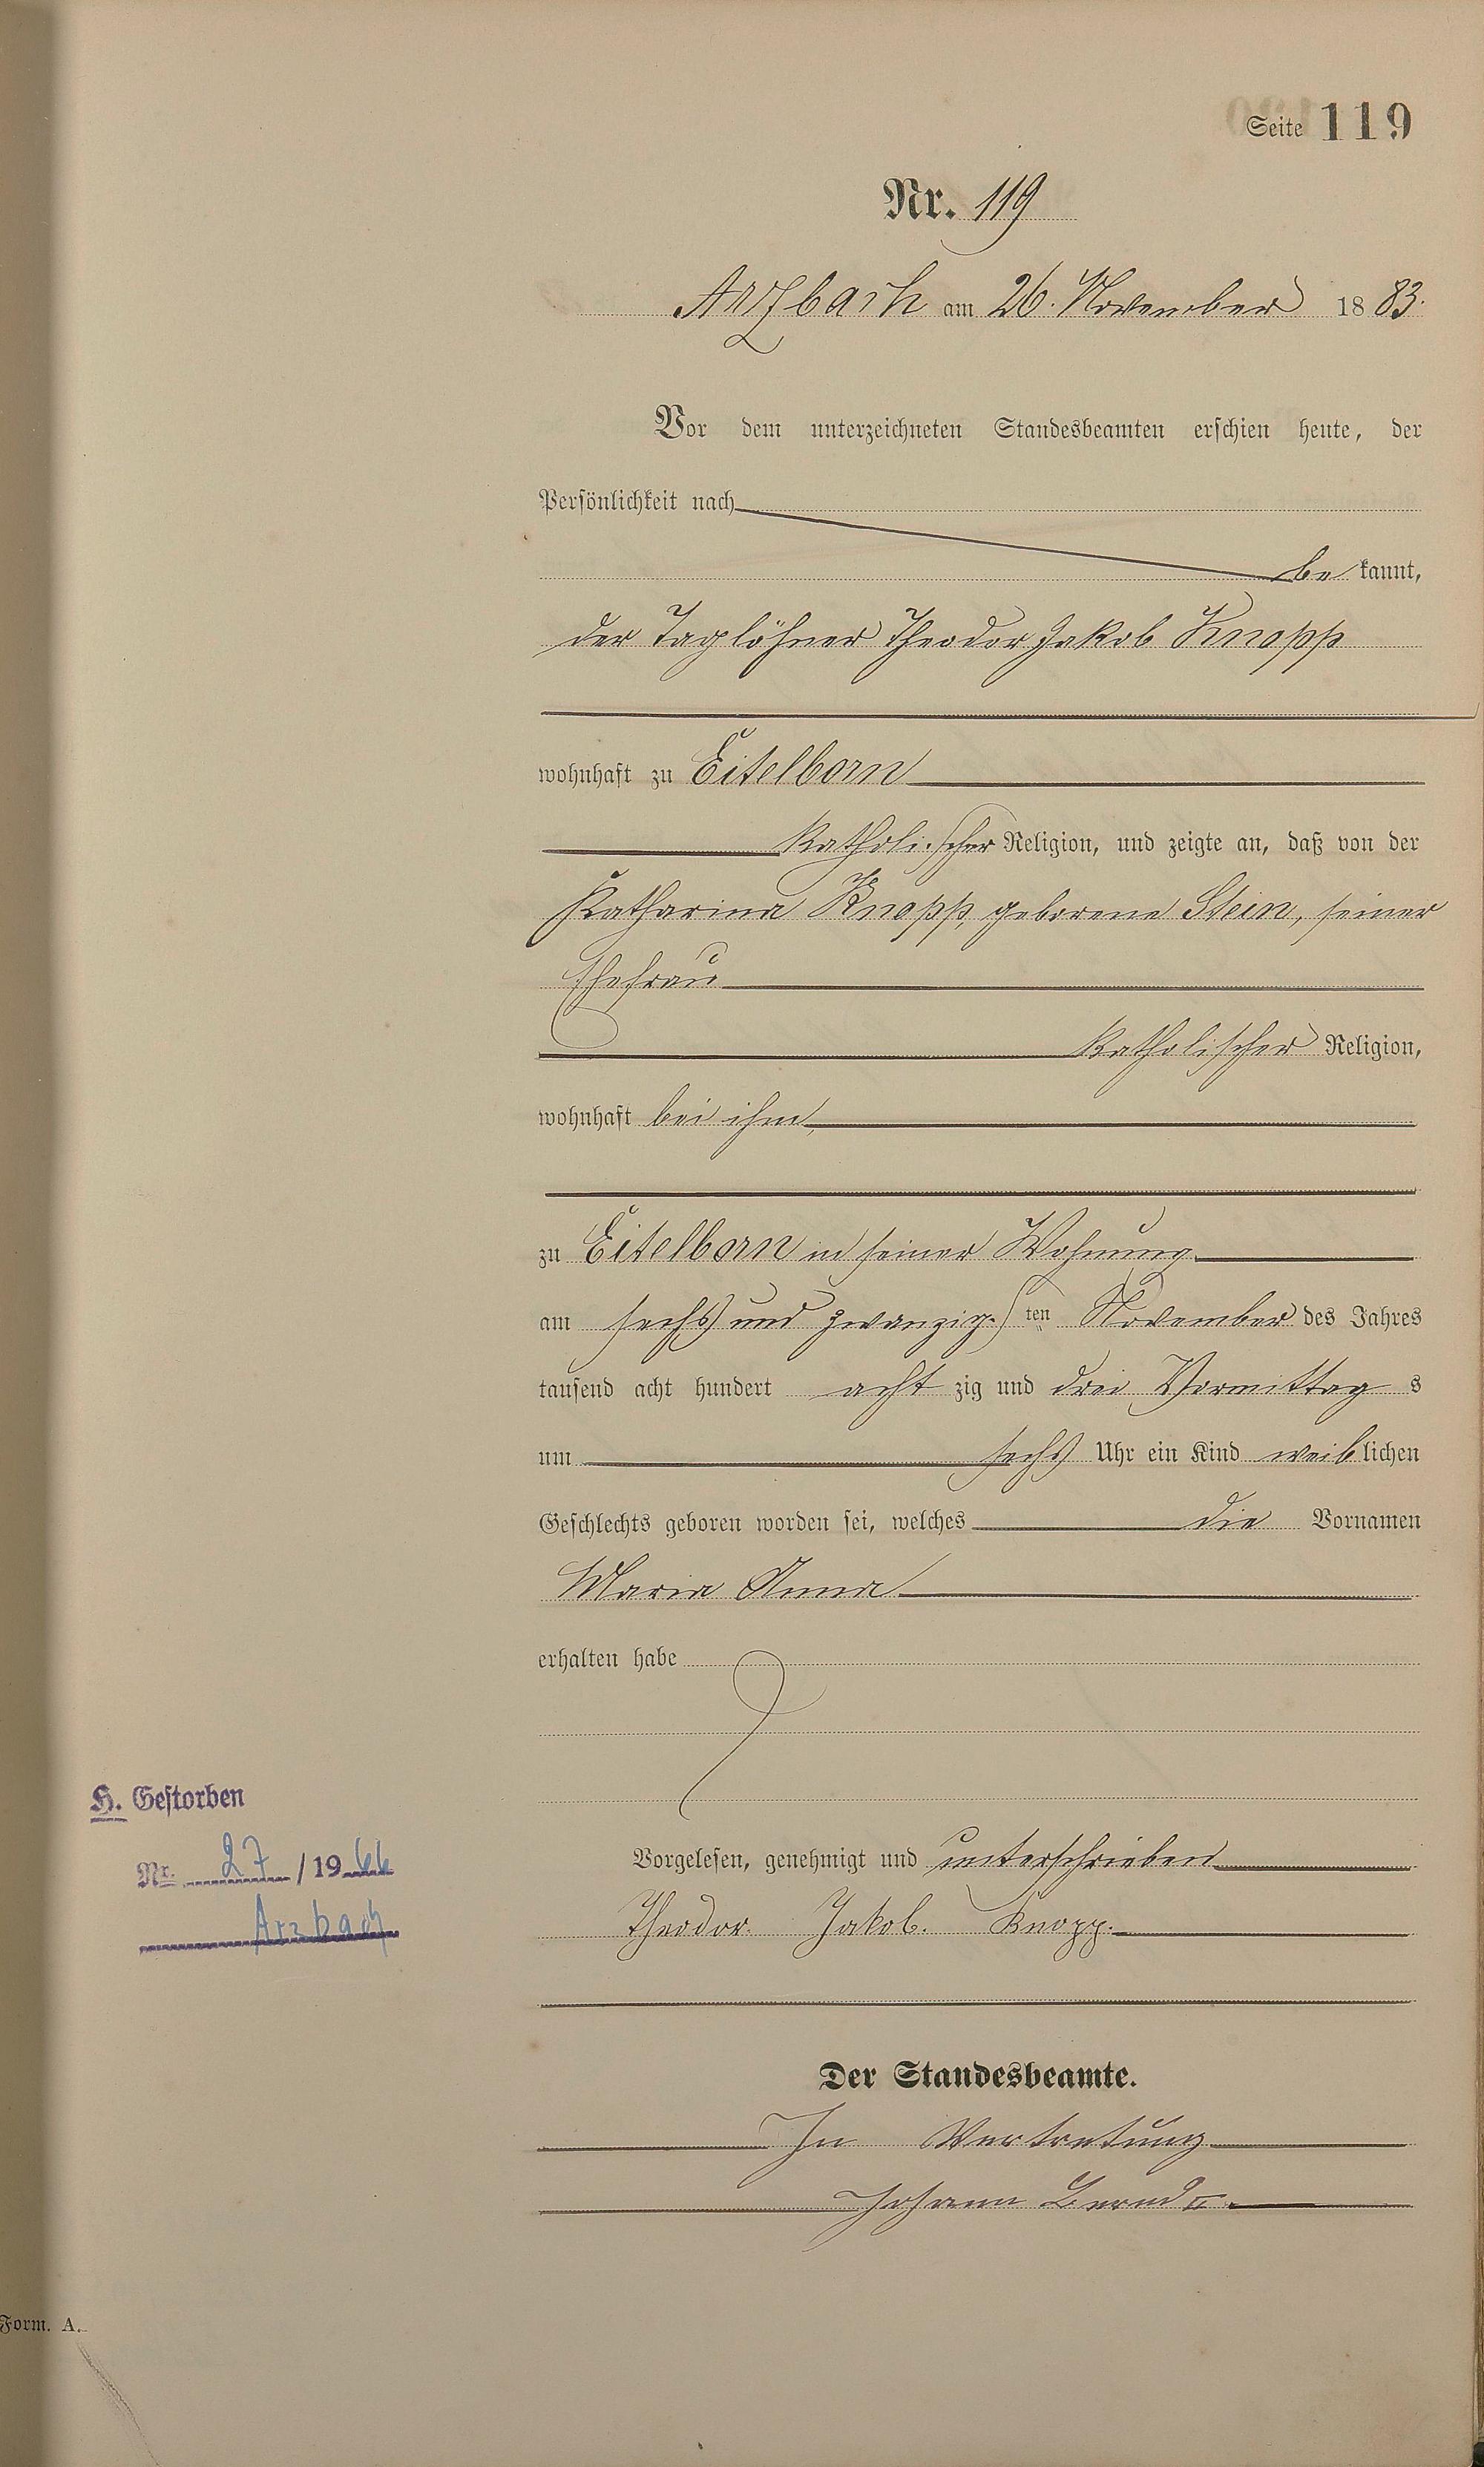 Seite 119
Nr. 119
Arzbach am 26. November 1883.
Vor dem unterzeichneten Standesbeamten erschien heute, der
Persönlichkeit nach
be kannt,
der Taglöhner Theodor Jakob Knopp
wohnhaft zu Eitelborn
katholischer Religion, und zeigte an, daß von der
Katharina Knopp, geborene Stein, seiner
Ehefrau
katholischer Religion,
wohnhaft bei ihm,
zu Eitelborn in seiner Wohnung
am sechs und zwanzigsten November des Jahres
tausend acht hundert acht zig und drei Vormittag s
um sechs Uhr ein Kind weiblichen
Geschlechts geboren worden sei, welches die Vornamen
Maria Anna
erhalten habe
H. Gestorben
Nr. 27 / 1966
Arzbach
Vorgelesen, genehmigt und unterschrieben
Theodor. Jakob. Knopp.
Der Standesbeamte.
In Vertretung
Johann Bernd II.
Form. A.